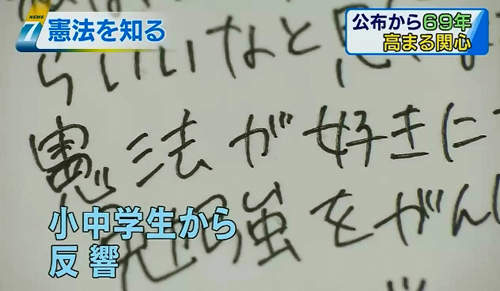 NEWS 7
憲法を知る
公布から69年
高まる関心
らいいなと思
憲法が好きに
勉強をがん
小中学生から
反響